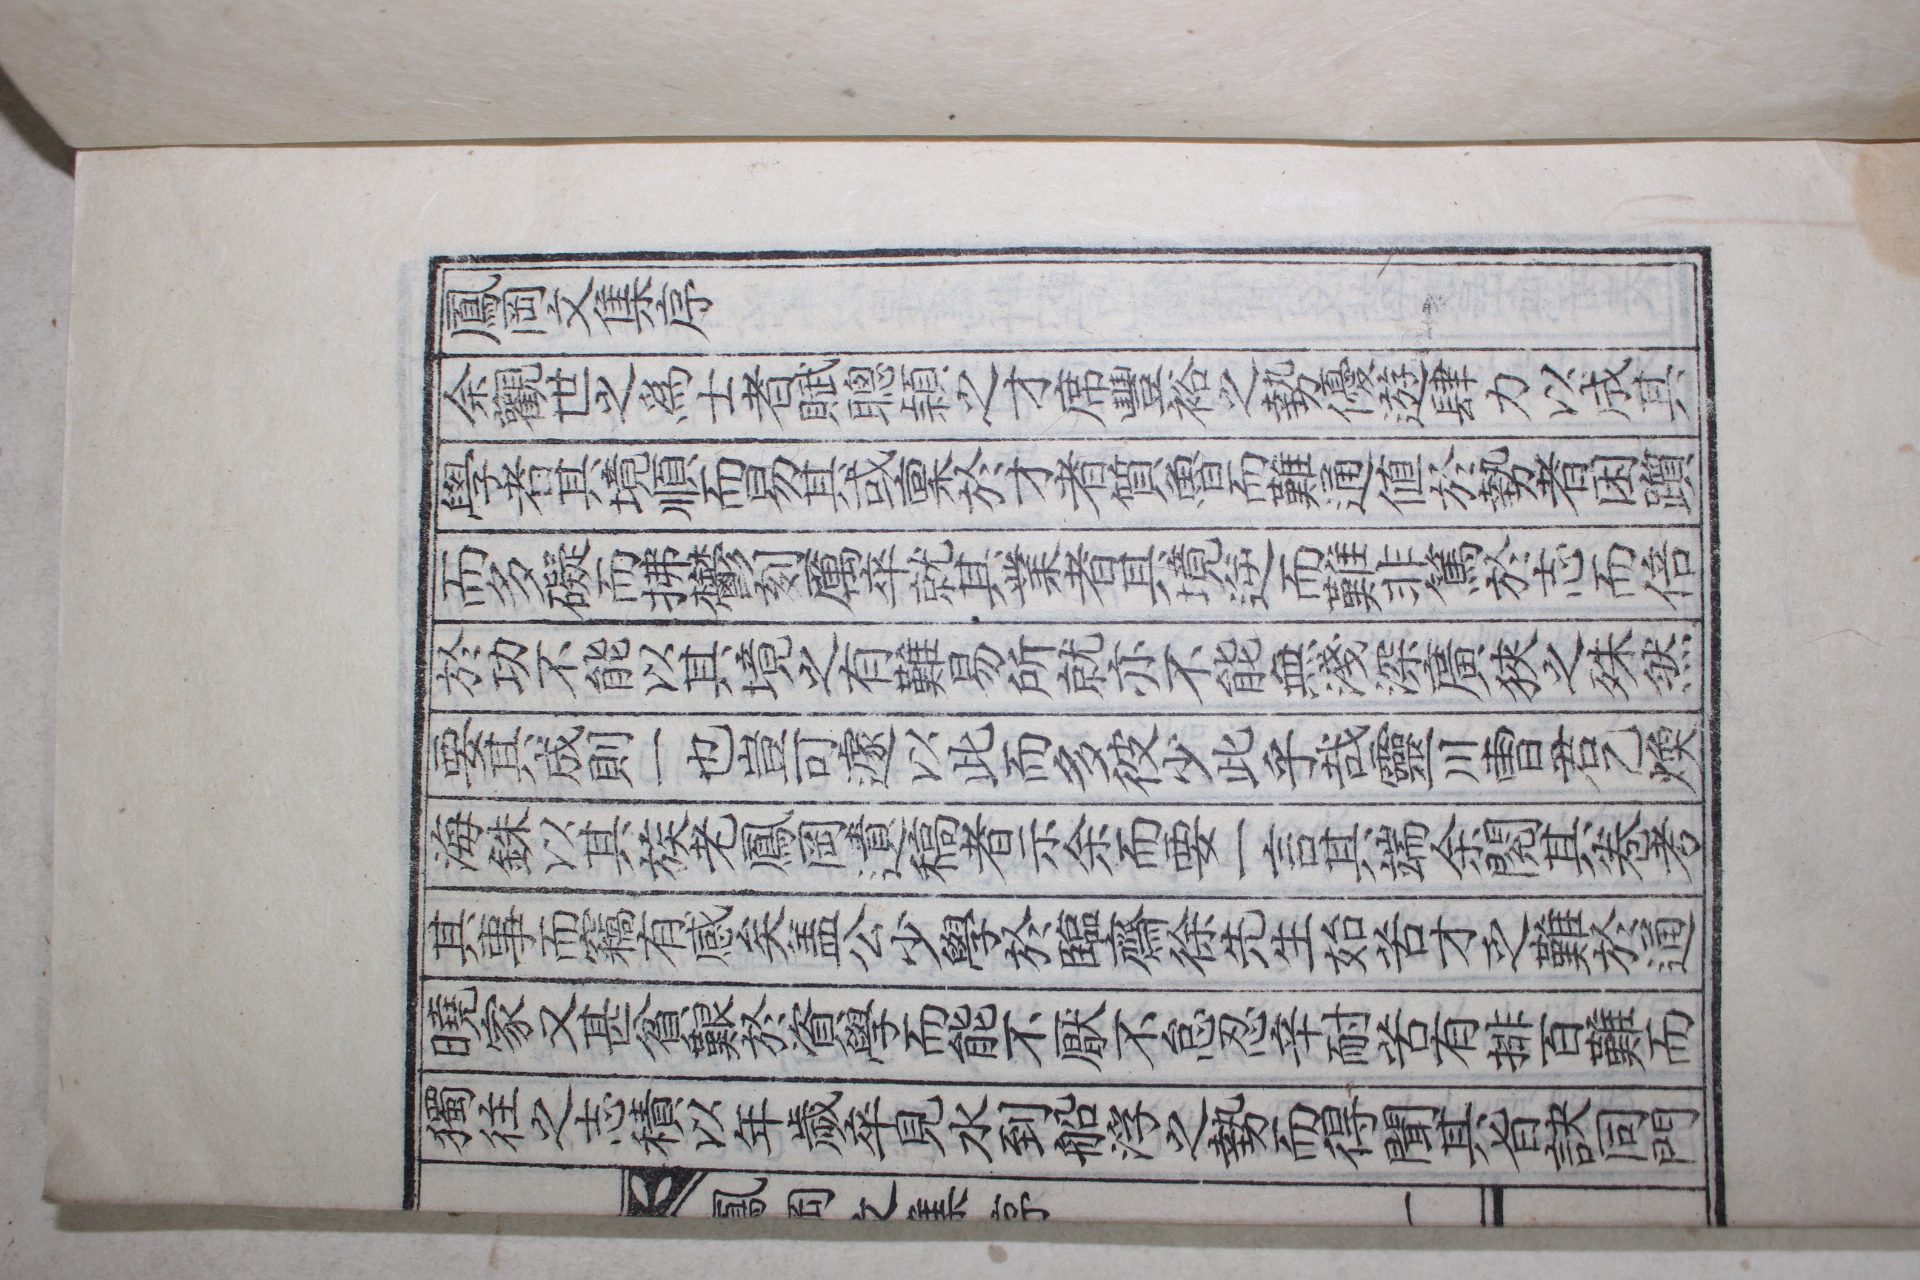 鳳岡文集序
余觀世之爲士者賦聰穎之才席豐裕之勢優遊肆力以成其
學者其境順而易其或嗇於才者質魯而難通値於勢者困躓
而多礙而拂欝刻厲卒就其業者其境逆而難非篤於志而倍
於功不能以其境之有難易所就亦不能無淺深廣狹之殊然
要其成則一也豈可遽以此而多彼少此乎哉靈川曺君乙煥
海銖以其族老鳳岡遺稿者示余而要一言其端余閱其卷考
其事而竊有感矣盖公少學於臨齋徐先生始苦才之難於通
曉家又甚貧艱於資學而能不厭不怠忍辛耐苦有排百難而
獨往之志積以年歲卒見水到船浮之勢而得聞其旨訣同門
鳳岡文集序 一